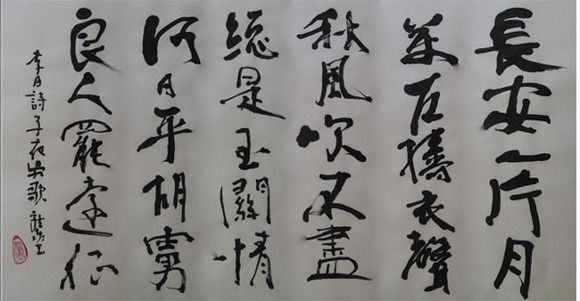 長安一片月
萬戶擣衣聲
秋風吹不盡
總是玉關情
何日平胡虜
良人罷遠征
李白詩子夜吳歌